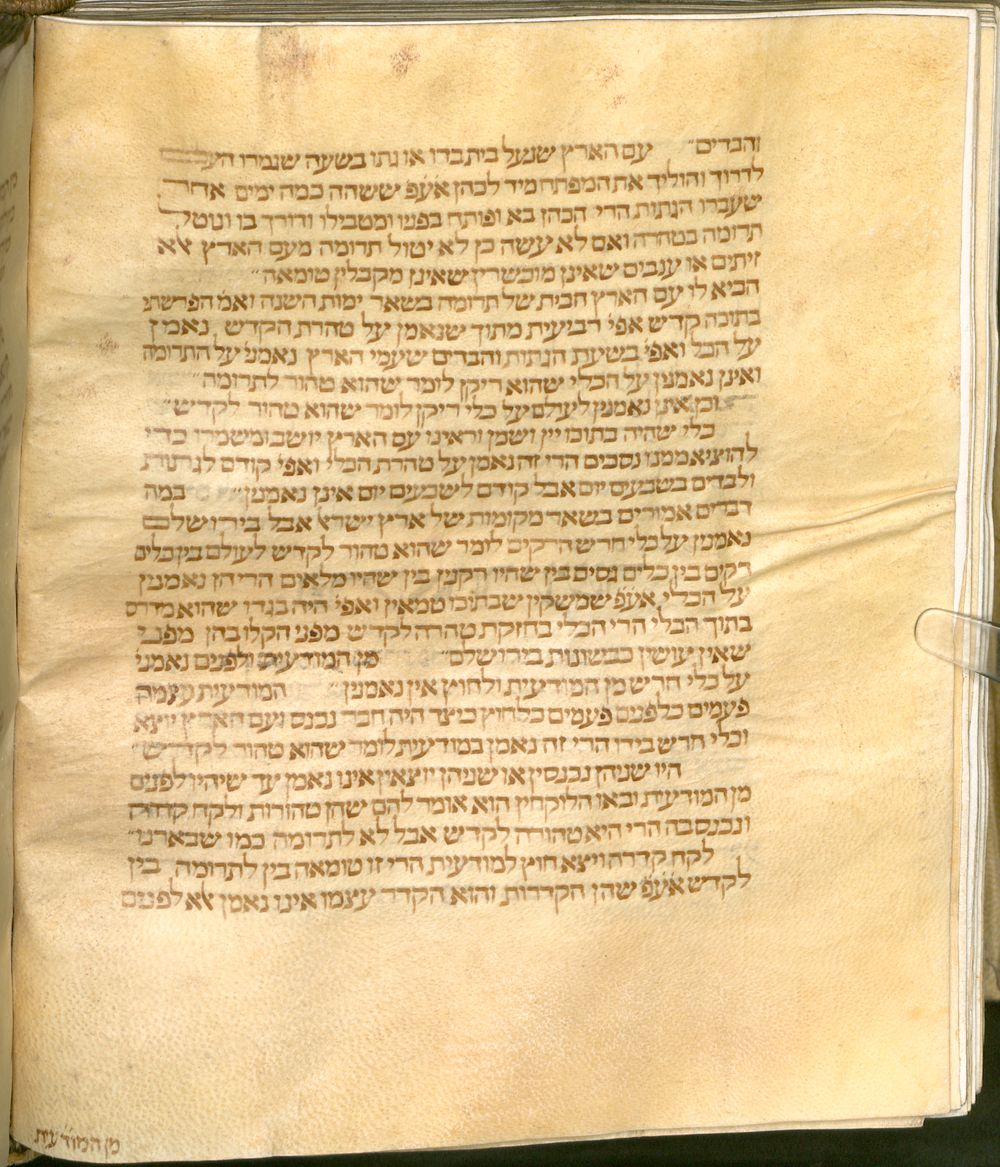 והבדים״ עם הארץ שנעל בית בדו או גתו בשעה שגמרו העם
לדרוך והוליך את המפתח מיד לכהן אע״פ ששהה כמה ימים אחר
שעברו הגתות הרי הכהן בא ופותח בפניו ומטבילו ודורך בו ונוטל
תרומה בטהרה ואם לא עשה כן לא יטול תרומה מעם הארץ אלא
זיתים או ענבים שאינן מוכשרין שאינן מקבלין טומאה״
הביא לו עם הארץ חבית של תרומה בשאר ימות השנה ואמ׳ הפרשתי
בתוכה קדש אפי׳ רביעית מתוך שנאמן על טהרת הקדש נאמן
על הכל ואפי׳ בשעת הגתות והבדים שעמי הארץ נאמני׳ על התרומה
ואינן נאמנין על הכלי שהוא ריקן לומר שהוא טהור לתרומה״
וכן אינן נאמנין לעולם על כלי ריקן לומר שהוא טהור לקדש״
כלי שהיה בתוכו יין ושמן וראינו עם הארץ יושב ומשמרו כדי
להוציא ממנו נסכים הרי זה נאמן על טהרת הכלי ואפי׳ קודם לגתות
ולבדים בשבעים יום אבל קודם לשבעים יום אינן נאמנין״ במה
דברים אמורים בשאר מקומות של ארץ ישראל אבל בירושלם
נאמנין על כלי חרש הדקים לומר שהוא טהור לקדש לעולם בין כלים
דקים בין כלים גסים בין שהיו רקנין בין שהיו מלאים הרי הן נאמנין
על הכלי אע״פ שמשקין שבתוכו טמאין ואפי׳ היה בגדו שהוא מדרס
בתוך הכלי הרי הכלי בחזקת טהרה לקדש מפני הקלו בהן מפני
שאין עושין כבשונות בירושלם״ מן המודעית ולפנים נאמני׳
על כלי חרש מן המודעית ולחוץ אין נאמנין״ המודעית עצמה
פעמים כלפנים פעמים כלחוץ כיצד היה חבר נכנס ועם הארץ יוצא
וכלי חרש בידו הרי זה נאמן במודעית לומר שהוא טהור לקדש״
היו שניהן נכנסין או שניהן יוצאין אינו נאמן עד שיהיו לפנים
מן המודעית ובאו הלוקחין הוא אומר להם שהן טהורות ולקח קדרה
ונכנס בה הרי היא טהורה לקדש אבל לא לתרומה כמו שבארנו״
לקח קדרה ויצא חוץ למודעית הרי זו טומאה בין לתרומה בין
לקדש אע״פ שהן הקדרות והוא הקדר עצמו אינו נאמן אלא לפנים
מן המודעית